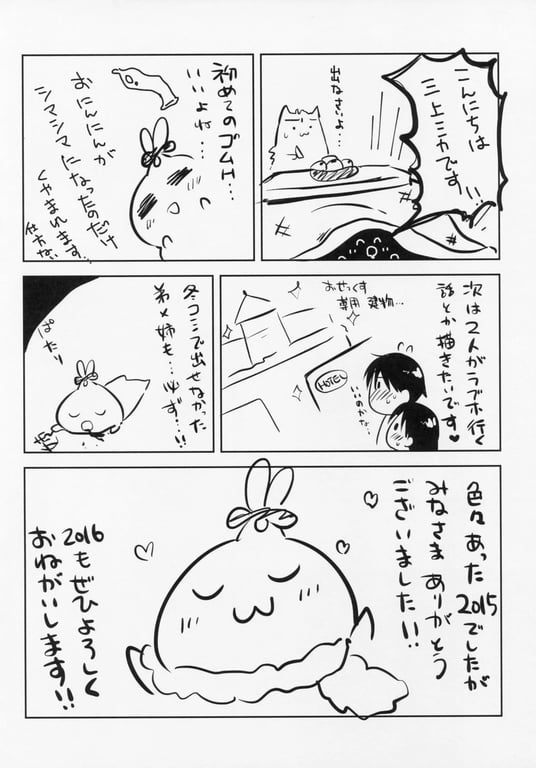 こんにちは
三上ミカです!!
出なさいよ…
初めてのゴムH…
いいよね…
おにんにんが
シマシマになったのだけ
くやまれます…
仕方ない
次は2人がラブホ行く
話とか描きたいです♥
おせっくす
専用建物…
HOTEL
いいのかな…
冬コミで出せなかった
弟×姉も…必ず…!!
ぱたり
色々あった2015でしたが
みなさまありがとう
ございました!!
2016もぜひよろしく
おねがいします!!